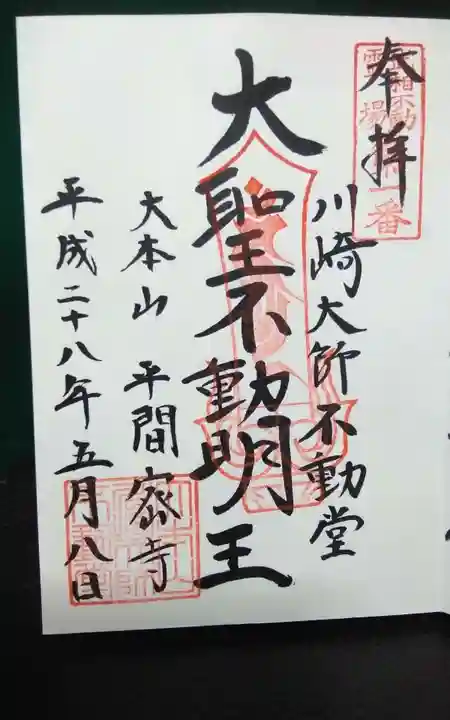 奉拝
相不動
霊場
一番
川崎大師不動堂
大聖不動明王
大本山 平間密寺
平成二十八年五月八日